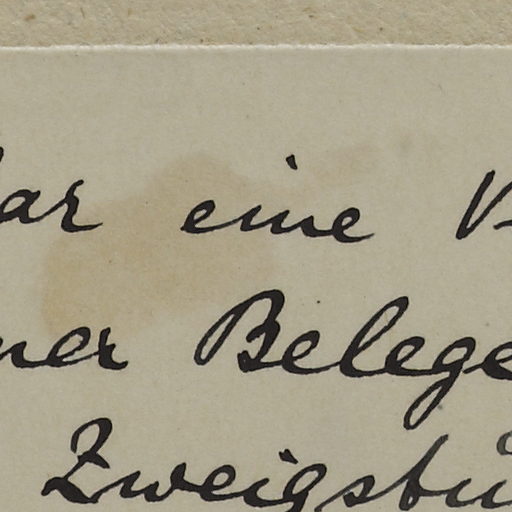 ar eine V
ner Belege
Zweigstü